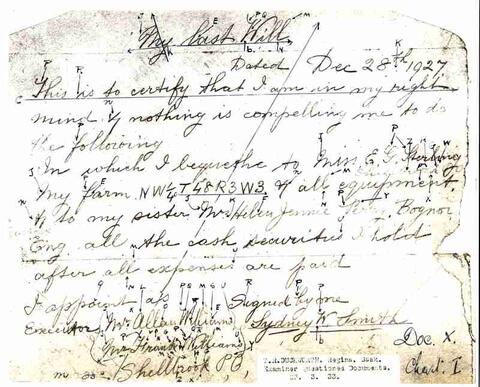 My Last Will
Dated Dec 28th 1927
This is to certify that I am in my right
mind & nothing is compelling me to do
the following
In which I bequethe to Miss E. G. Sterling
My farm NW¼ T48 R3 W3 & all equipment
& to my sister Mrs Helen Jennie Bognor
Eng all the cash securities I hold
after all expenses are paid
I appoint as Signed by me
Executors Mr Allan Williams Sydney W Smith
Mr Frank Williams Doc X.
Shellbrook PO, Chart I
T.H. DUCKWORTH, Regina, Sask.
Examiner Questioned Documents.
3. 33.